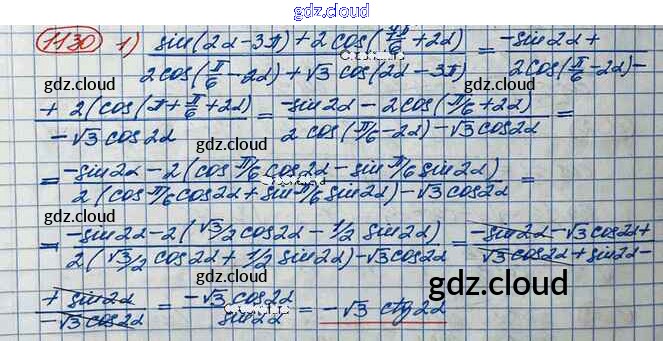 gdz.cloud
1130 1) (sin(2α-3π)+2cos(7π/6+2α))/(2cos(π/6-2α)+√3 cos(2α-3π)) = (-sin2α+)/(2cos(π/6-2α)-
gdz.cloud gdz.cloud
(+2(cos(π+π/6+2α))/(-√3cos2α) = (-sin2α-2cos(π/6+2α))/(2cos(π/6-2α)-√3cos2α) =
gdz.cloud gdz.cloud
= (-sin2α-2(cosπ/6cos2α-sinπ/6sin2α))/(2(cosπ/6cos2α+sinπ/6sin2α)-√3cos2α) =
gdz.cloud
= (-sin2α-2(√3/2cos2α-1/2sin2α))/(2(√3/2cos2α+1/2sin2α)-√3cos2α) = (-sin2α-√3cos2α+)/(√3cos2α+sin2α-
gdz.cloud gdz.cloud
(+sin2α)/(-√3cos2α) = (-√3cos2α)/(sin2α) = -√3 ctg2α